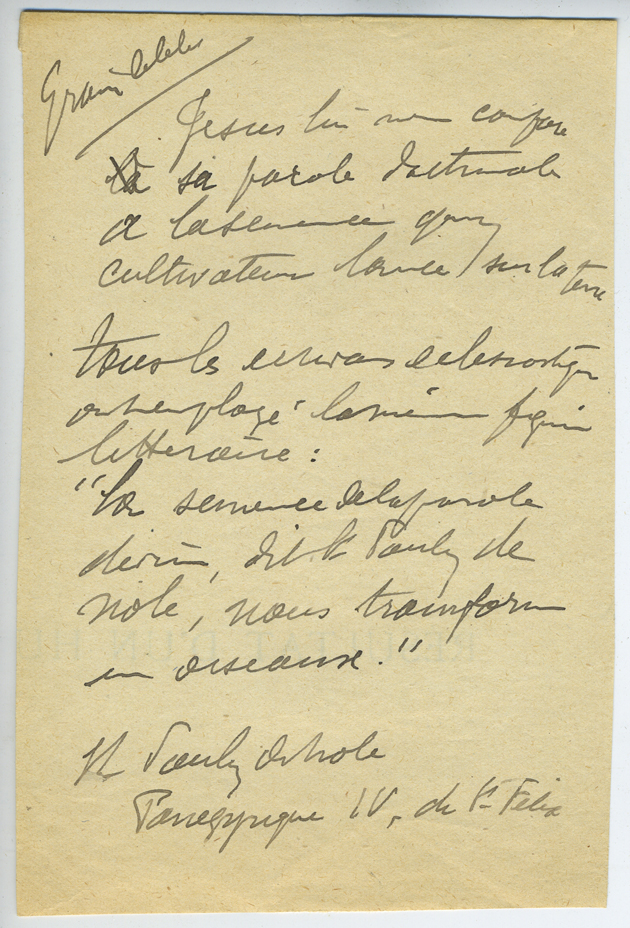 Grain de blé
Jesus lui mm compare
sa parole doctrinale
a la semence qu'un
cultivateur lance sur la terre
tous les ecrivains eclesiastiques
ont employé la même figure
litteraire :
"La semence de la parole
divine, dit St Paulin de
Nole, nous transforme
en oiseaux."
St Paulin de Nole
Panegyrique IV, de St Felix